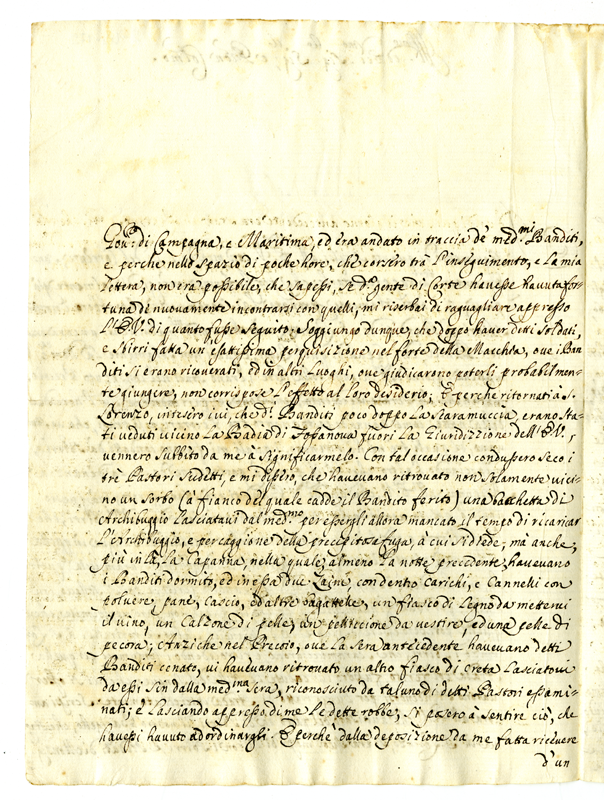 Gou.re di Campagna, e Maritima, ed era andato in traccia de' med.mi Banditi,
e perche nello spazio di poche hore, che corsero trà l'inseguimento, e la mia
lettera, non era possibile, che sapessi, se d.a gente di Corte hauesse hauuta for-
tuna di nuouamente incontrarsi con quelli, mi riserbai di raguagliare appresso
l'E.V. di quanto fusse seguito. Soggiungo dunque, che doppo hauer detti soldati,
e Sbirri fatta un'esattissima perquisizione nel forte della Macchia, oue i Ban
diti si erano ricouerati, ed in altri Luoghi, oue giudicarono poterli probabilmen-
te giungere, non corrispose l'effetto al loro desiderio; E perche ritornati à S.
Lorenzo, intesero iui, che d.i Banditi poco doppo la Scaramuccia, erano sta-
ti ueduti uicino la Badia di Fossanoua fuori la Giuridizzione dell'E.V.,
uennero subbito da me à significarmelo. Con tal occasione condussero seco i
trè Pastori sudetti, e mi dissero, che haueuano ritrouato non solamente uici-
no un sorbo (à fianco del quale cadde il Bandito ferito) una bacchetta di
Archibuggio lasciataui dal med.mo per essergli allora mancato il tempo di ricaricar
l'Archibuggio, e per caggione della precipitosa fuga, à cui si diede; mà anche,
più in là, la Capanna, nella quale, almeno la notte precedente, haueuano
i Banditi dormito, ed in essa due Zaine, con dentro Carichi, e Cannelli con
poluere, pane, Cascio, ed altre bagattelle, un fiasco di Legno da metterui
il uino, un Calzone di pelle, un pelliccione da uestire, ed una pelle di
pecora; Anzi che nel Procoio, oue la sera antecedente haueuano detti
Banditi cenato, ui haueuano ritrouato un altro fiasco di creta lasciatoui
da essi sin dalla med.ma sera, riconosciuto da taluno di detti Pastori essami-
nati; e lasciando appresso di me le dette robbe, si posero à sentire ciò, che
hauessi hauuto ad ordinargli. E perche dalla deposizione da me fatta riceuere
d'un